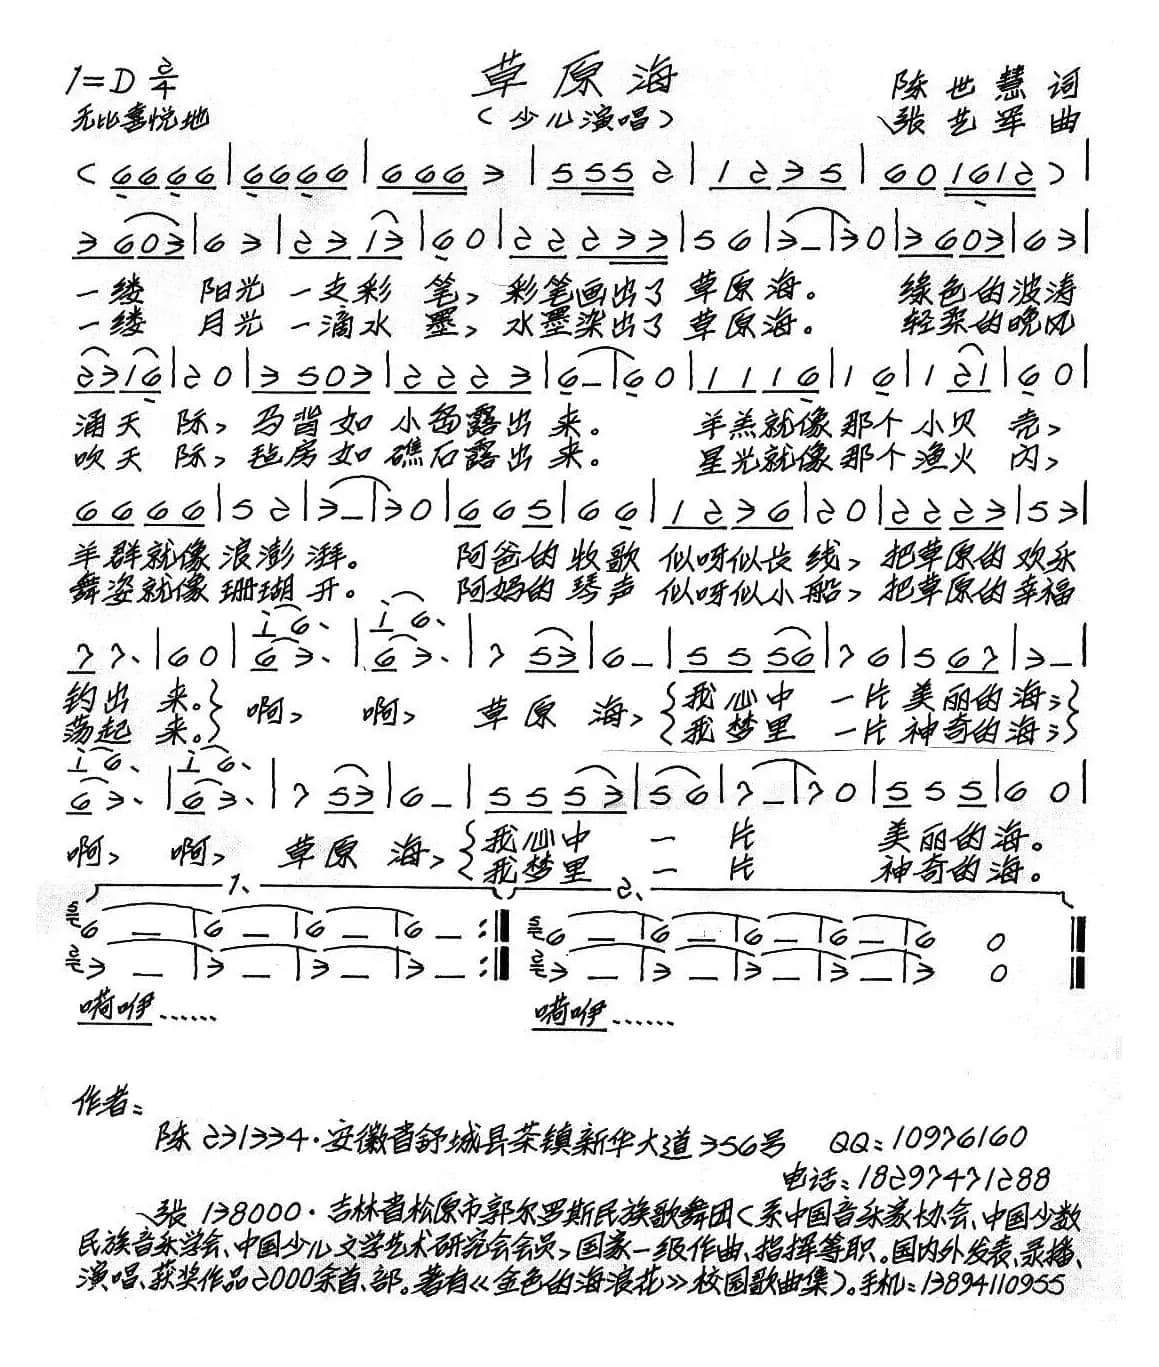 草原海
1=D 2/4
（少儿演唱） 陈世慧 词
无比喜悦地 张艺军 曲
（6666|6666|6663|5552|1235|601612）|
3603|63|2313|60|22233|56|3–|30|3603|63|
一缕 阳光 一支彩 笔，彩笔画出了 草原海。 绿色的波涛
一缕 月光 一滴水 墨，水墨染出了 草原海。 轻柔的晚风
2316|20|3503|2223|6–|60|1116|16|121|60|
涌天 际，马背如 小岛露出 来。 羊羔就像那个小贝 壳，
吹天 际，毡房如 礁石露出 来。 星光就像那个渔火 闪，
6666|52|3–|30|665|66|1236|20|2223|53|
羊群就像 浪澎 湃。 阿爸的 牧歌 似呀似长 线，把草原的 欢乐
舞姿就像 珊瑚 开。 阿妈的 琴声 似呀似小 船，把草原的 幸福
i6、 i6、
77、|60|63、|63、|7 53|6–|5556|76|567|3–|
钓出 来。}啊， 啊， 草原 海，{我心中 一片 美丽的海；}
荡起 来。} {我梦里 一片 神奇的海；}
i6、 i6、
63、|63、|7 53|6–|5553|56|7–|70|555|60|
啊， 啊， 草原 海，{我心中 一 片 美丽的海。
{我梦里 一 片 神奇的海。
1、 2、
6 –|6 –|6 –|6 –:‖ 6 –|6 –|6 –|6 –|6 0‖
3 –|3 –|3 –|3 –:‖ 3 –|3 –|3 –|3 –|3 0‖
嗬咿…… 嗬咿……
作者：
陈 231334·安徽省舒城县茶镇新华大道356号 QQ：10976160
电话：18297471288
张 138000·吉林省松原市郭尔罗斯民族歌舞团（系中国音乐家协会、中国少数
民族音乐学会、中国少儿文学艺术研究会会员，国家一级作曲、指挥等职。国内外发表、录播、
演唱、获奖作品2000余首、部。著有《金色的海浪花》校园歌曲集）。手机：13894110955